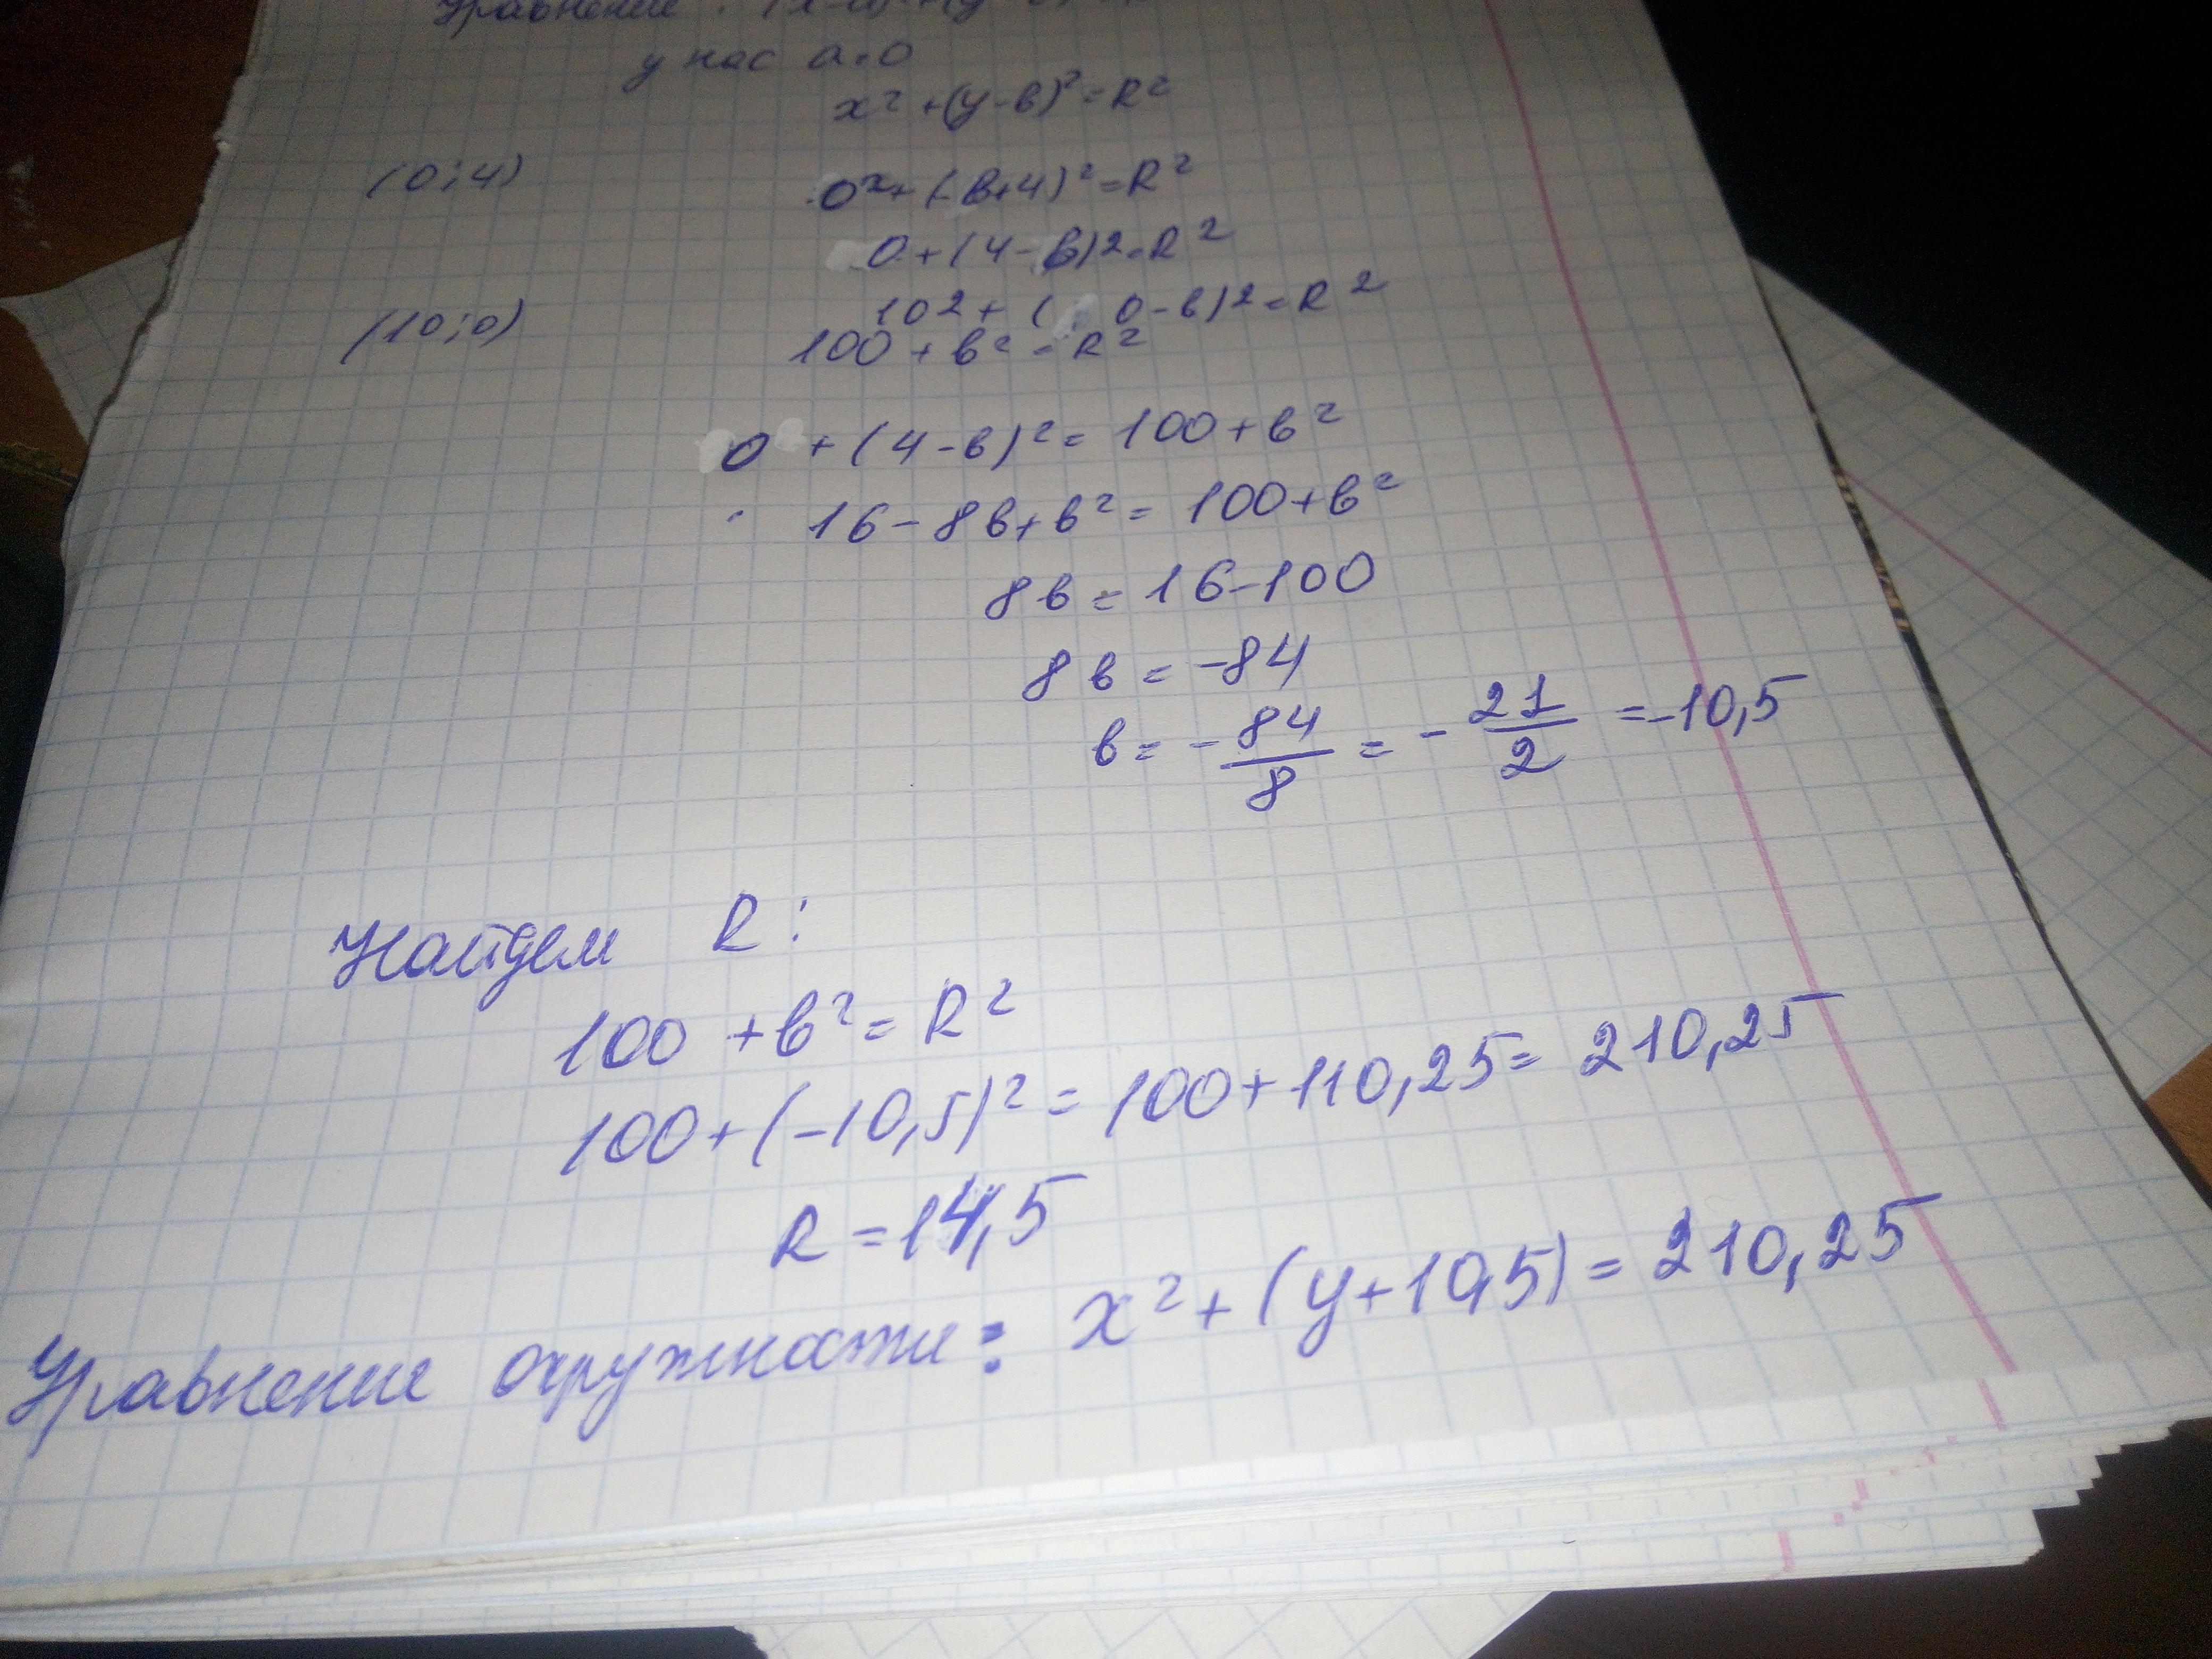 Уравнение :
у нас a=0
x² + (y-в)² = R²
(0;4) 0² + (-в+4)² = R²
0 + (4-в)2 = R²
(10;0) 102 + ( 0-в)2 = R²
100 + в² = R²
0 + (4-в)² = 100 + в²
16 - 8в + в² = 100 + в²
8в = 16-100
8в = -84
в = - 84/8 = - 21/2 = -10,5
Найдем R :
100 + в² = R²
100 + (-10,5)² = 100 + 110,25 = 210,25
R = 14,5
Уравнение окружности : x² + (y+10,5) = 210,25